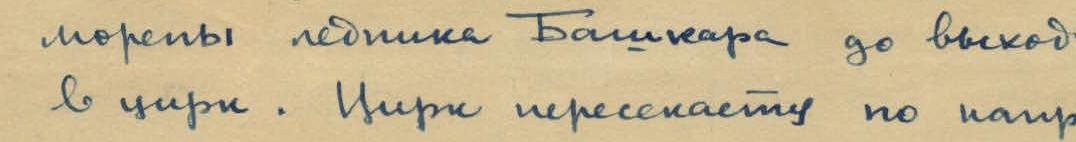 морены ледника Башкара до выход
в цирк. Цирк пересекается по напр